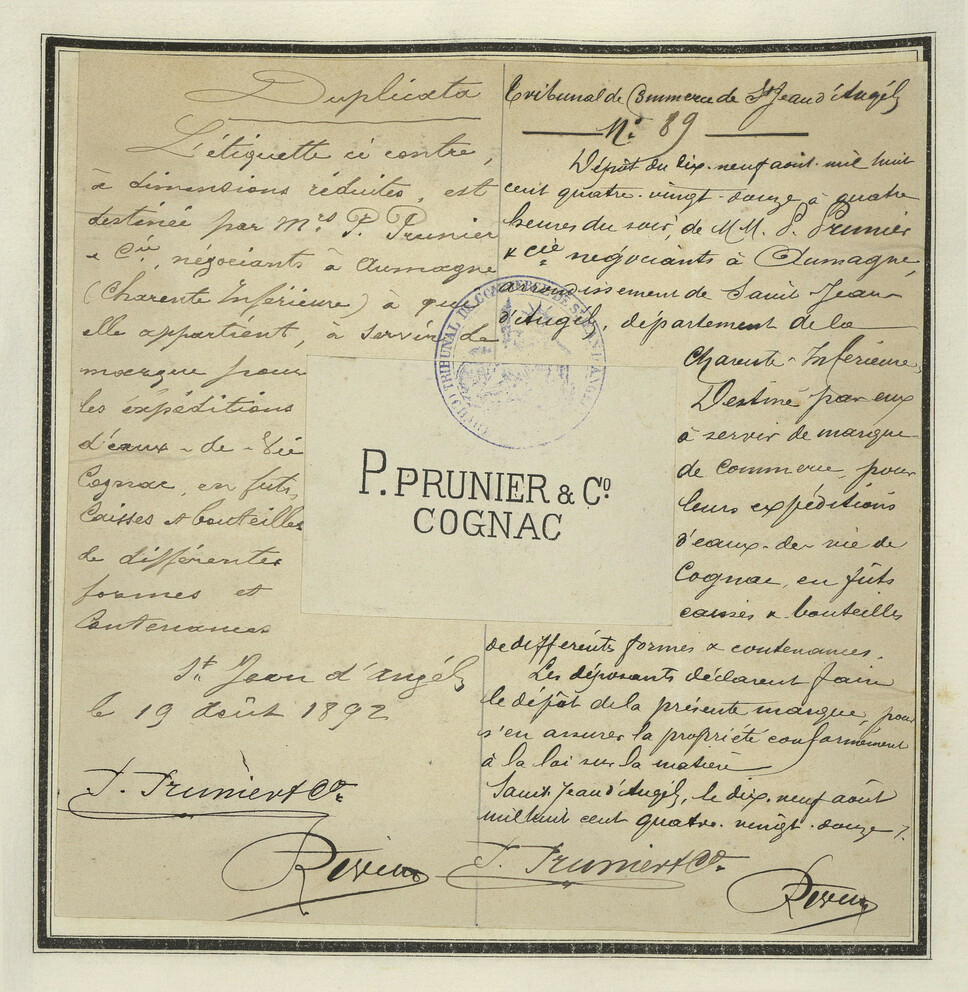 Duplicata
L'étiquette ci contre,
à dimensions réduites, est
destinée par Mrs P. Prunier
& Cie, négociants à Aumagne
(Charente Inférieure) à qui
elle appartient, à servir de
marque pour
les expéditions
d'eaux-de-Vie
Cognac, en futs,
Caisses et bouteilles
de différentes
formes et
Contenances
St. Jean d'Angély
le 19 Août 1892
P. Prunier & Co.
Tribunal de Commerce de St Jean d'Angély
N° 89
Dépôt du dix-neuf août mil huit
cent quatre-vingt-douze à quatre
heures du soir, de MM. P. Prunier
& Cie négociants à Aumagne,
arrondissement de Saint-Jean-
d'Angély, département de la
Charente-Inférieure,
Destiné par eux
à servir de marque
de commerce, pour
leurs expéditions
d'eaux-de-vie de
Cognac, en fûts
caisses & bouteilles
de différents formes & contenances.
Les déposants déclarent faire
le dépôt de la présente marque, pour
s'en assurer la propriété conformément
à la loi sur la matière
Saint Jean d'Angély, le dix-neuf août
mil huit cent quatre-vingt-douze.
P. Prunier & Co.
TRIBUNAL DE COMMERCE DE ST JEAN D'ANGELY
P. PRUNIER & Co
COGNAC